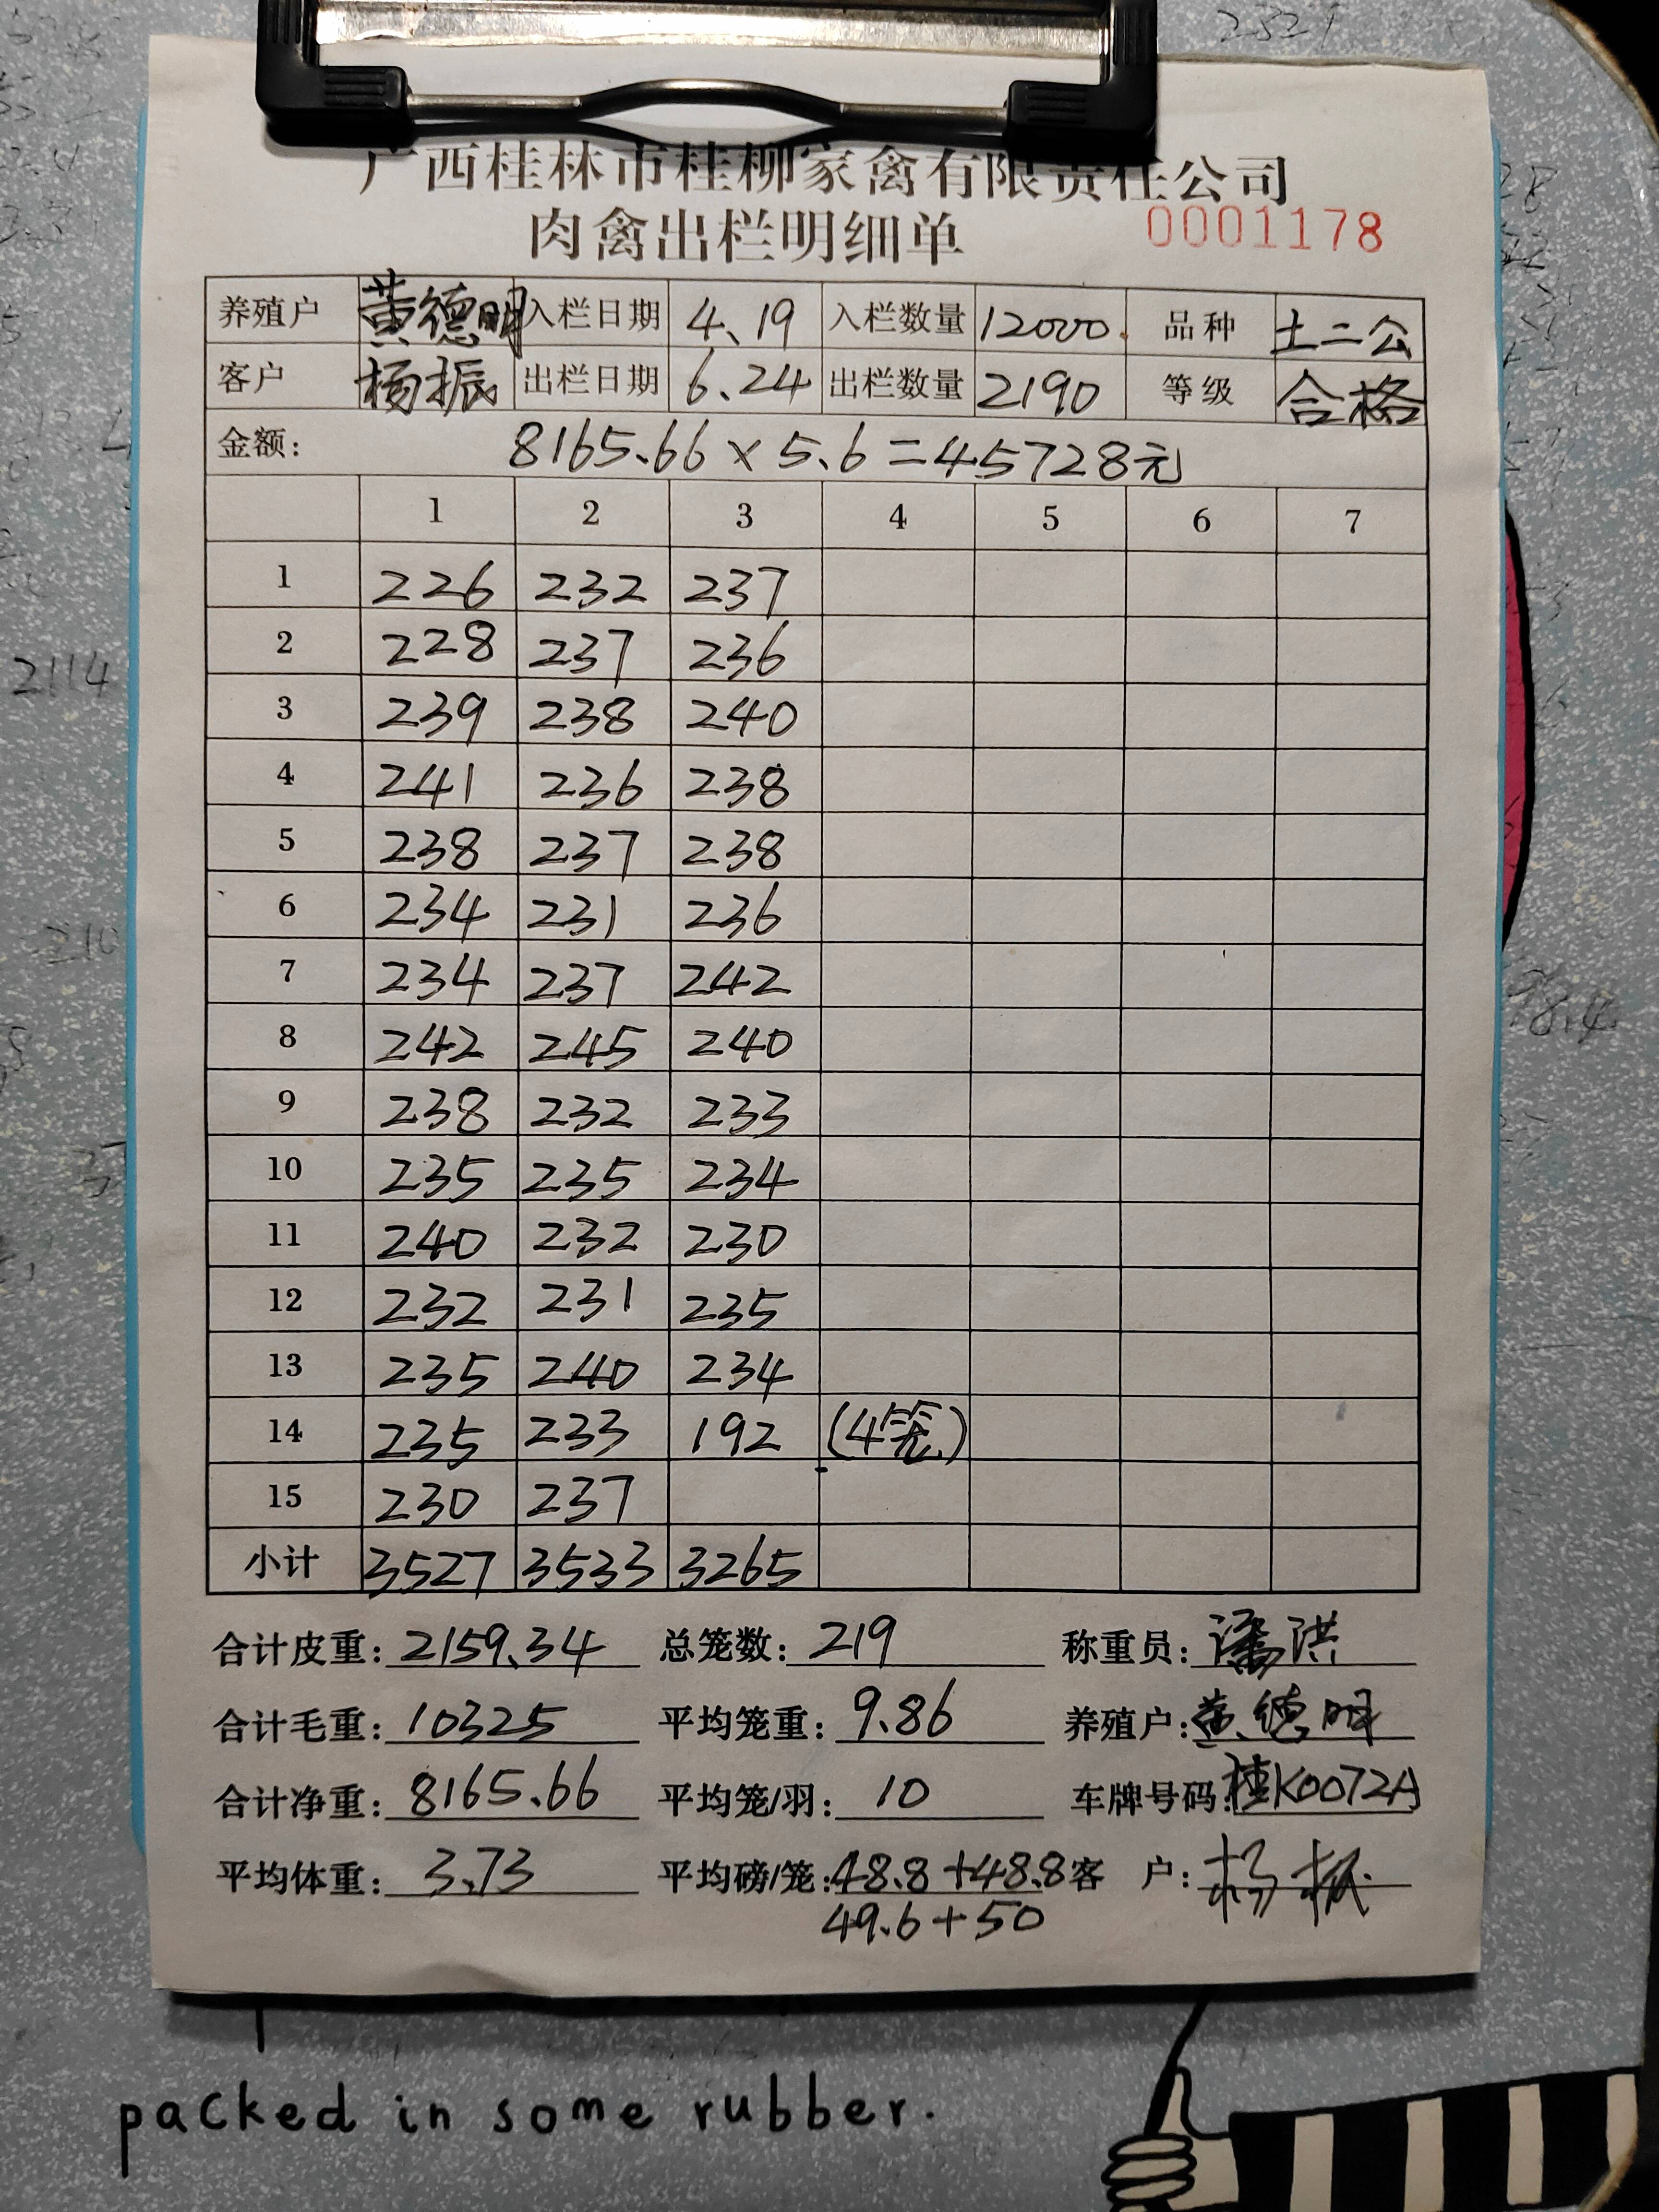 广西桂林市桂柳家禽有限责任公司
肉禽出栏明细单 0001178
养殖户 黄德明 入栏日期 4.19 入栏数量 12000 品种 土二公
客户 杨振 出栏日期 6.24 出栏数量 2190 等级 合格
金额: 8165.66×5.6=45728元
1 2 3 4 5 6 7
1 226 232 237
2 228 237 236
3 239 238 240
4 241 236 238
5 238 237 238
6 234 231 236
7 234 237 242
8 242 245 240
9 238 232 233
10 235 235 234
11 240 232 230
12 232 231 235
13 235 240 234
14 235 233 192 (4笼)
15 230 237
小计 3527 3533 3265
合计皮重: 2159.34 总笼数: 219 称重员: 潘洪
合计毛重: 10325 平均笼重: 9.86 养殖户: 黄德明
合计净重: 8165.66 平均笼/羽: 10 车牌号码: 桂K0072A
平均体重: 3.73 平均磅/笼: 48.8+48.8 客 户: 杨振
49.6+50
packed in some rubber.
2114